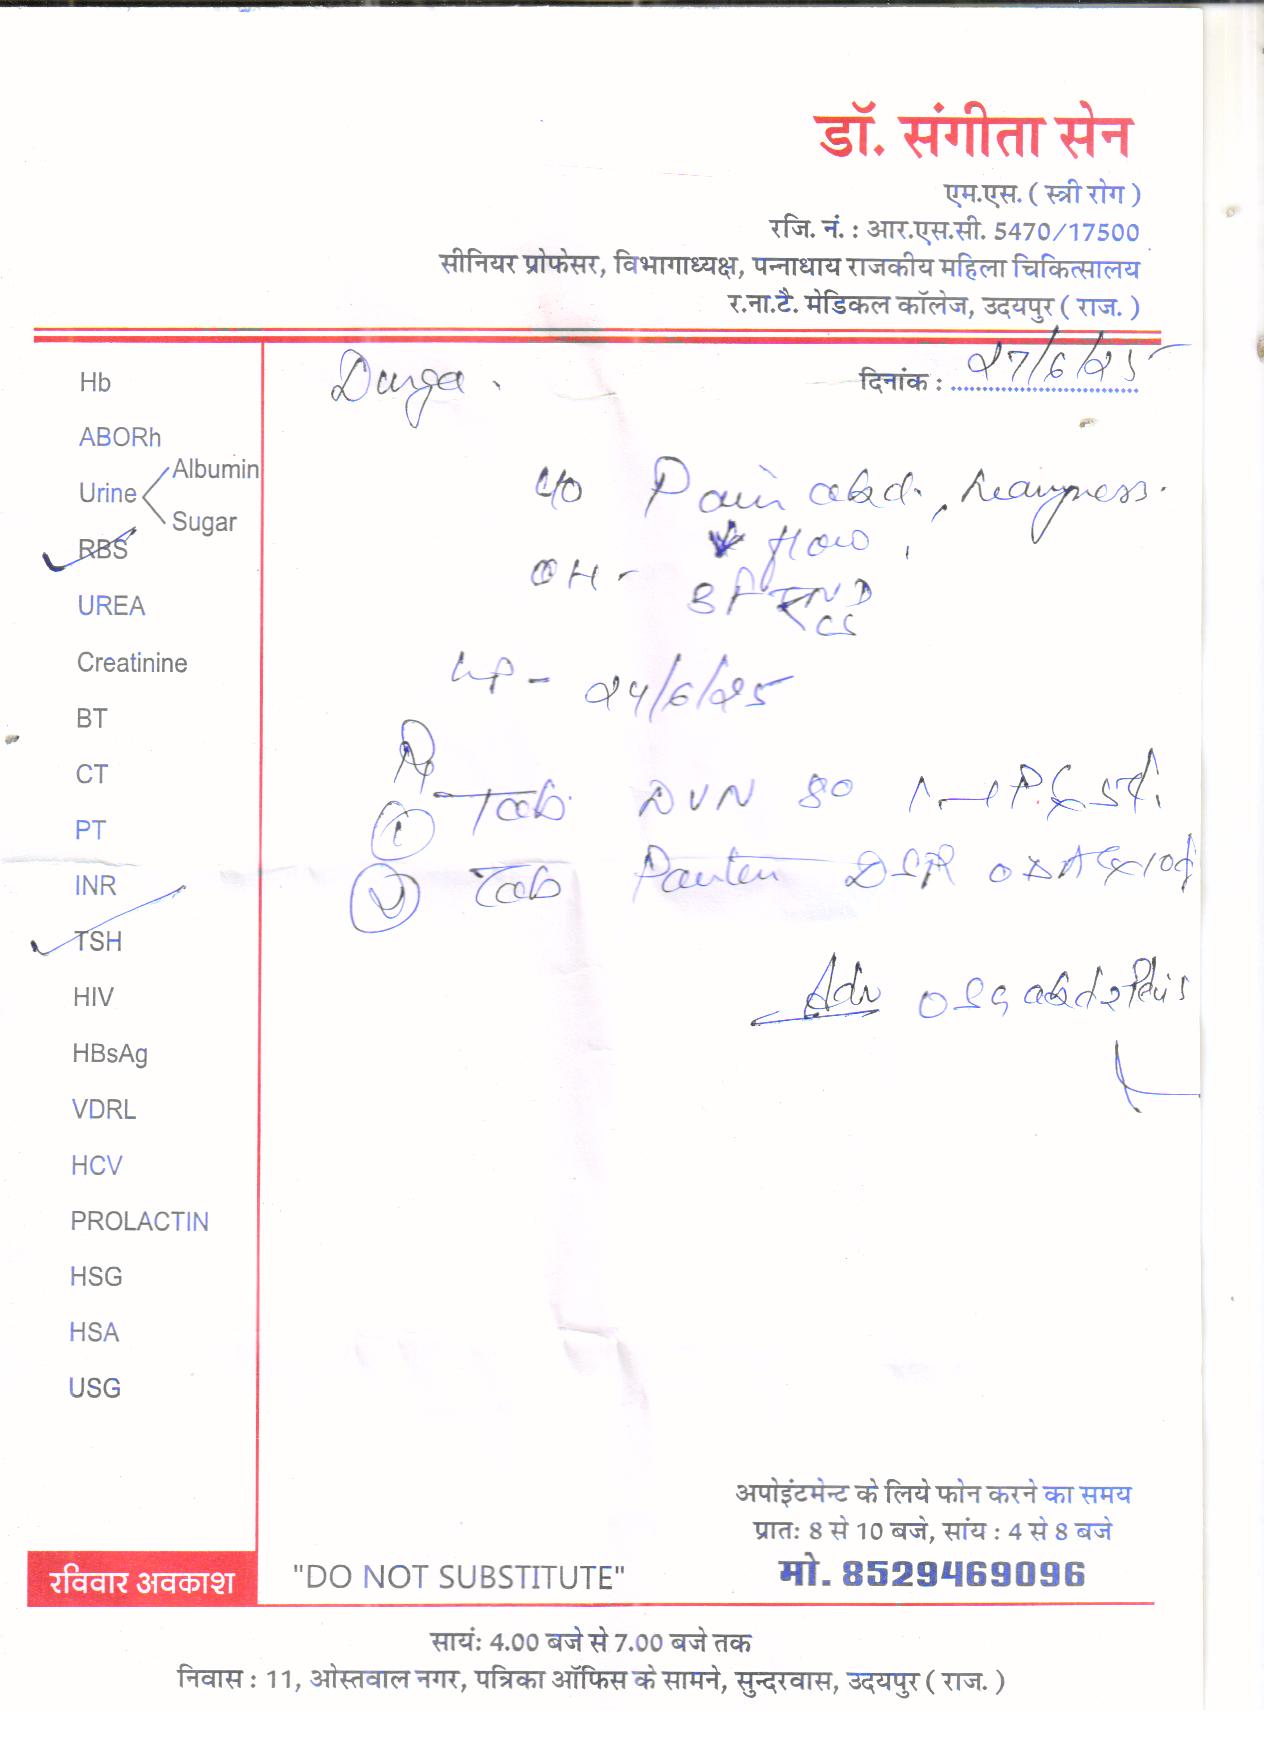 डॉ. संगीता सेन
एम.एस. ( स्त्री रोग )
रजि. नं. : आर.एस.सी. 5470/17500
सीनियर प्रोफेसर, विभागाध्यक्ष, पन्नाधाय राजकीय महिला चिकित्सालय
र.ना.टै. मेडिकल कॉलेज, उदयपुर ( राज. )
Durga
दिनांक : 27/6/25
Hb
ABORh
Urine Albumin
Sugar
RBS
UREA
Creatinine
BT
CT
PT
INR
TSH
HIV
HBsAg
VDRL
HCV
PROLACTIN
HSG
HSA
USG
c/o Pain abd, heavyness.
↓ flow,
OH -
LMP - 24/6/25
Rx
① Tab DVN 80
② Tab Pantem DSR
Adv USG abd & Pelvis
अपोइंटमेन्ट के लिये फोन करने का समय
प्रातः 8 से 10 बजे, सांय : 4 से 8 बजे
मो. 8529469096
रविवार अवकाश
"DO NOT SUBSTITUTE"
सायं: 4.00 बजे से 7.00 बजे तक
निवास : 11, ओस्तवाल नगर, पत्रिका ऑफिस के सामने, सुन्दरवास, उदयपुर ( राज. )